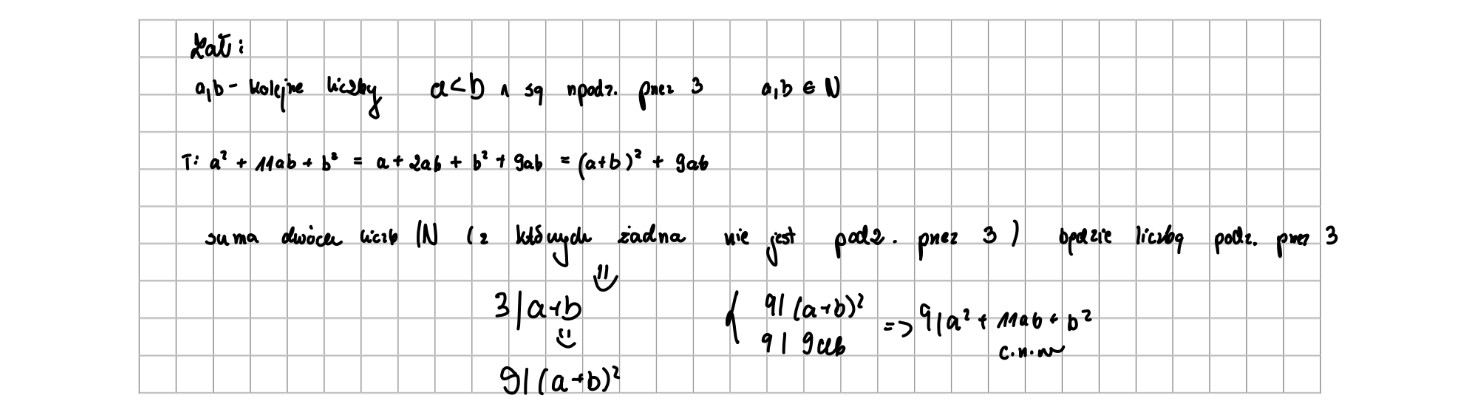 Zał:
a,b - kolejne liczby a<b ∧ są npodz. przez 3 a,b ∈ N
T: a² + 11ab + b² = a + 2ab + b² + 9ab = (a+b)² + 9ab
suma dwóch liczb IN (z których żadna nie jest podz. przez 3) będzie liczbą podz. przez 3
3|a+b
9|(a+b)²
{ 9|(a+b)²
9|9ab
=> 9|a² + 11ab + b²
c.n.w